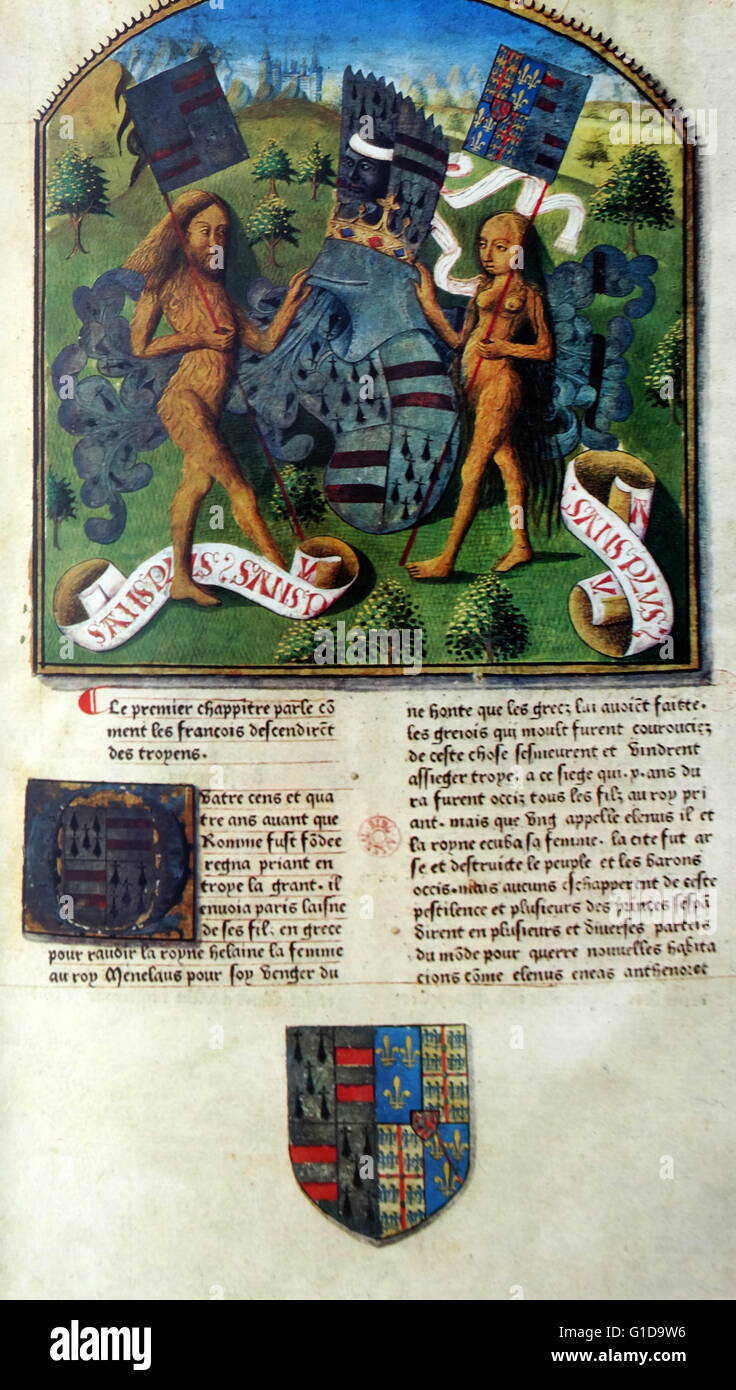 Le premier chappitre parle cõ
ment les francois descendirẽt
des troyens.
vatre cens et qua
tre ans auant que
Romme fust fõdee
regna priant en
troye la grant. il
enuoia paris laisne
de ses filz en grece
pour rauoir la royne helaine la femme
au roy Menelaus pour soy venger du
ne honte que les grecz lui auoiẽt faitte.
les greiois qui moult furent courouciez
de ceste chose sesmeurent et vindrent
assieger troye. a ce siege qui .x. ans du
ra furent occiz tous les filz au roy pri
ant. mais que vng appelle elenus il et
la royne ecuba sa femme. la cite fut ar
se et destruicte le peuple et les barons
occis. mais aucuns eschapperent de ceste
pestilence et plusieurs des princes sespã
dirent en plusieurs et diuerses parties
du mõde pour querre nouuelles habita
cions cõme elenus eneas anthenor et
alamy
Image ID: G1D9W6
www.alamy.com